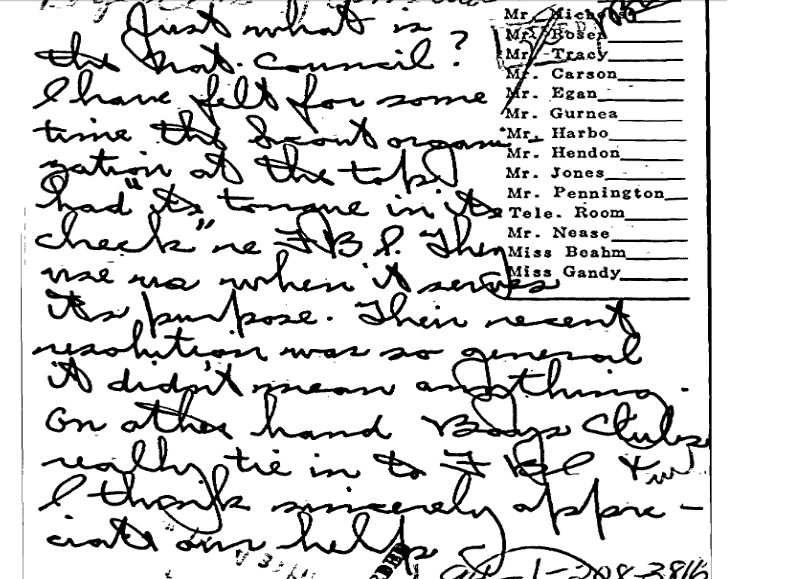 Just what is
the Nat. Council?
I have felt for some
time the Scout organi-
zation at the top
had "its tongue in its
cheek" re FBI. They
use us when it serves
its purpose. Their recent
resolution was so general
it didn't mean anything.
On other hand Boys Clubs
really tie in to FBI &
I think sincerely appre-
ciate our help
Mr. Nichols
Mr. Rosen
Mr. Tracy
Mr. Carson
Mr. Egan
Mr. Gurnea
Mr. Harbo
Mr. Hendon
Mr. Jones
Mr. Pennington
Tele. Room
Mr. Nease
Miss Beahm
Miss Gandy